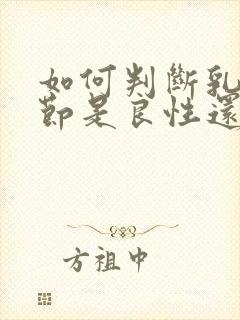 如何判斷乳
節是良性還
方祖中